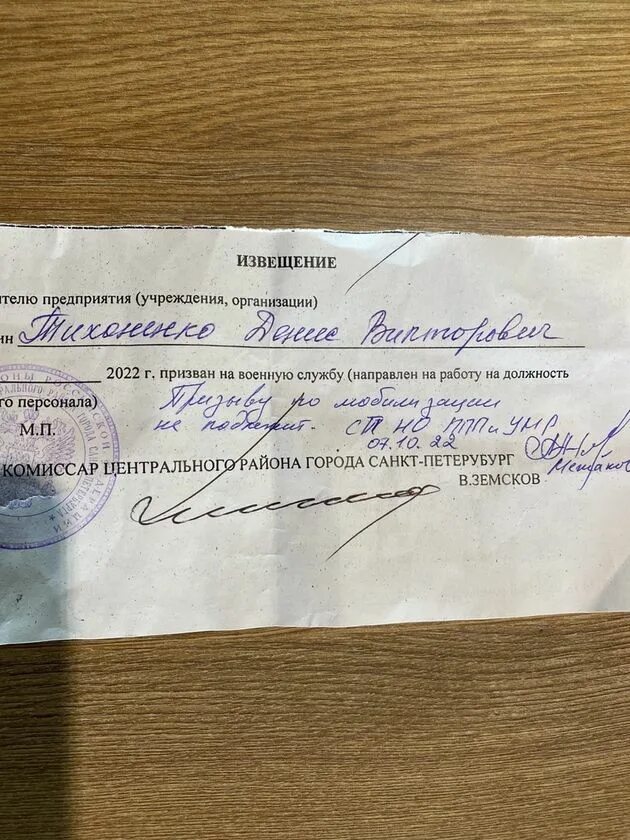 ИЗВЕЩЕНИЕ
ителю предприятия (учреждения, организации)
ин Тихоненко Денис Викторович
2022 г. призван на военную службу (направлен на работу на должность
го персонала) Призыву по мобилизации
М.П. не подлежит. СП НО ППП и УМР
07.10.22
КОМИССАР ЦЕНТРАЛЬНОГО РАЙОНА ГОРОДА САНКТ-ПЕТЕРУБУРГ
В.ЗЕМСКОВ